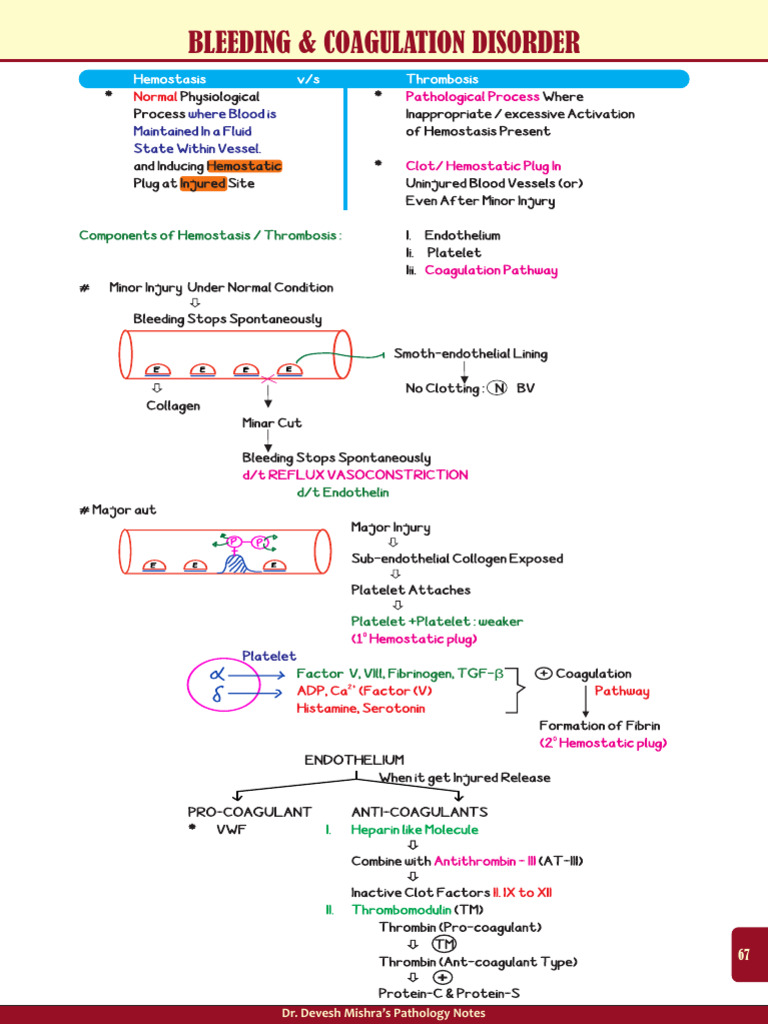 BLEEDING & COAGULATION DISORDER
Hemostasis v/s Thrombosis
* Normal Physiological
Process where Blood is
Maintained In a Fluid
State Within Vessel.
and Inducing Hemostatic
Plug at Injured Site
* Pathological Process Where
Inappropriate / excessive Activation
of Hemostasis Present
* Clot/ Hemostatic Plug In
Uninjured Blood Vessels (or)
Even After Minor Injury
Components of Hemostasis / Thrombosis :
I. Endothelium
Ii. Platelet
Iii. Coagulation Pathway
# Minor Injury Under Normal Condition
Bleeding Stops Spontaneously
E E E E
Smoth-endothelial Lining
No Clotting : N BV
Collagen
Minar Cut
Bleeding Stops Spontaneously
d/t REFLUX VASOCONSTRICTION
d/t Endothelin
# Major aut
P P
E E E
Major Injury
Sub-endothelial Collagen Exposed
Platelet Attaches
Platelet +Platelet : weaker
(1° Hemostatic plug)
Platelet
α Factor V, VIII, Fibrinogen, TGF-β
δ ADP, Ca²⁺ (Factor (V)
Histamine, Serotonin
+ Coagulation
Pathway
Formation of Fibrin
(2° Hemostatic plug)
ENDOTHELIUM
When it get Injured Release
PRO-COAGULANT
* VWF
ANTI-COAGULANTS
I. Heparin like Molecule
Combine with Antithrombin - III (AT-III)
Inactive Clot Factors II. IX to XII
II. Thrombomodulin (TM)
Thrombin (Pro-coagulant)
TM
Thrombin (Ant-coagulant Type)
+
Protein-C & Protein-S
67
Dr. Devesh Mishra's Pathology Notes